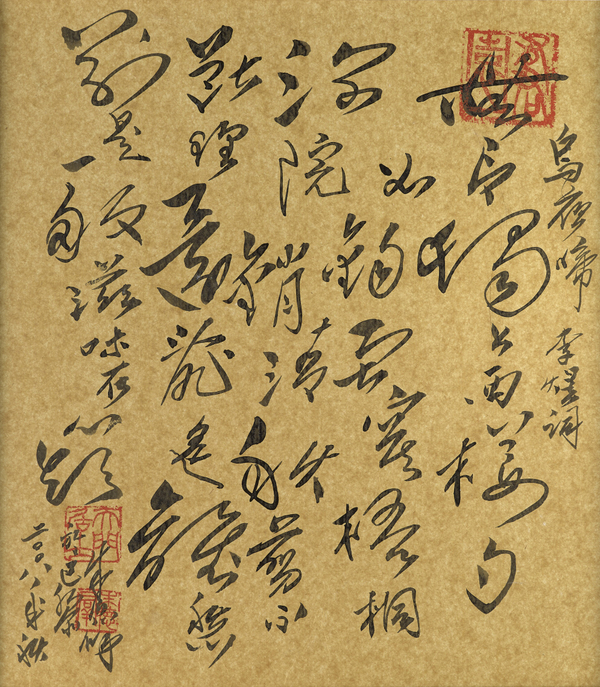 烏夜啼 李煜詞
無言獨上西樓月
如鉤寂寞梧桐
深院鎖清秋剪不
斷理還亂是離愁
別是一般滋味在心頭
二〇〇八年秋